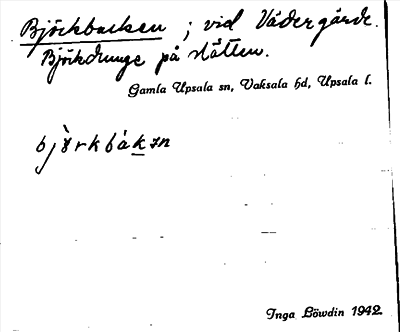 Björkbacken ; vid Vädergårde.
Björkdunge på slätten.
Gamla Upsala sn, Vaksala hd, Upsala l.
bjòrkbákən
Inga Löwdin 1942.